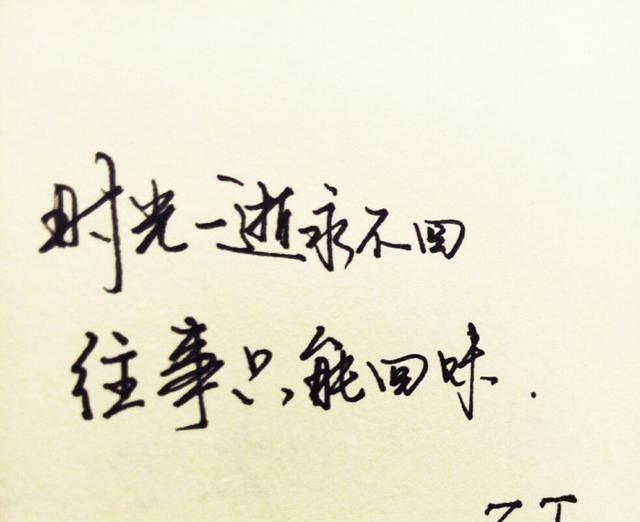 时光一逝永不回
往事只能回味.
ZT